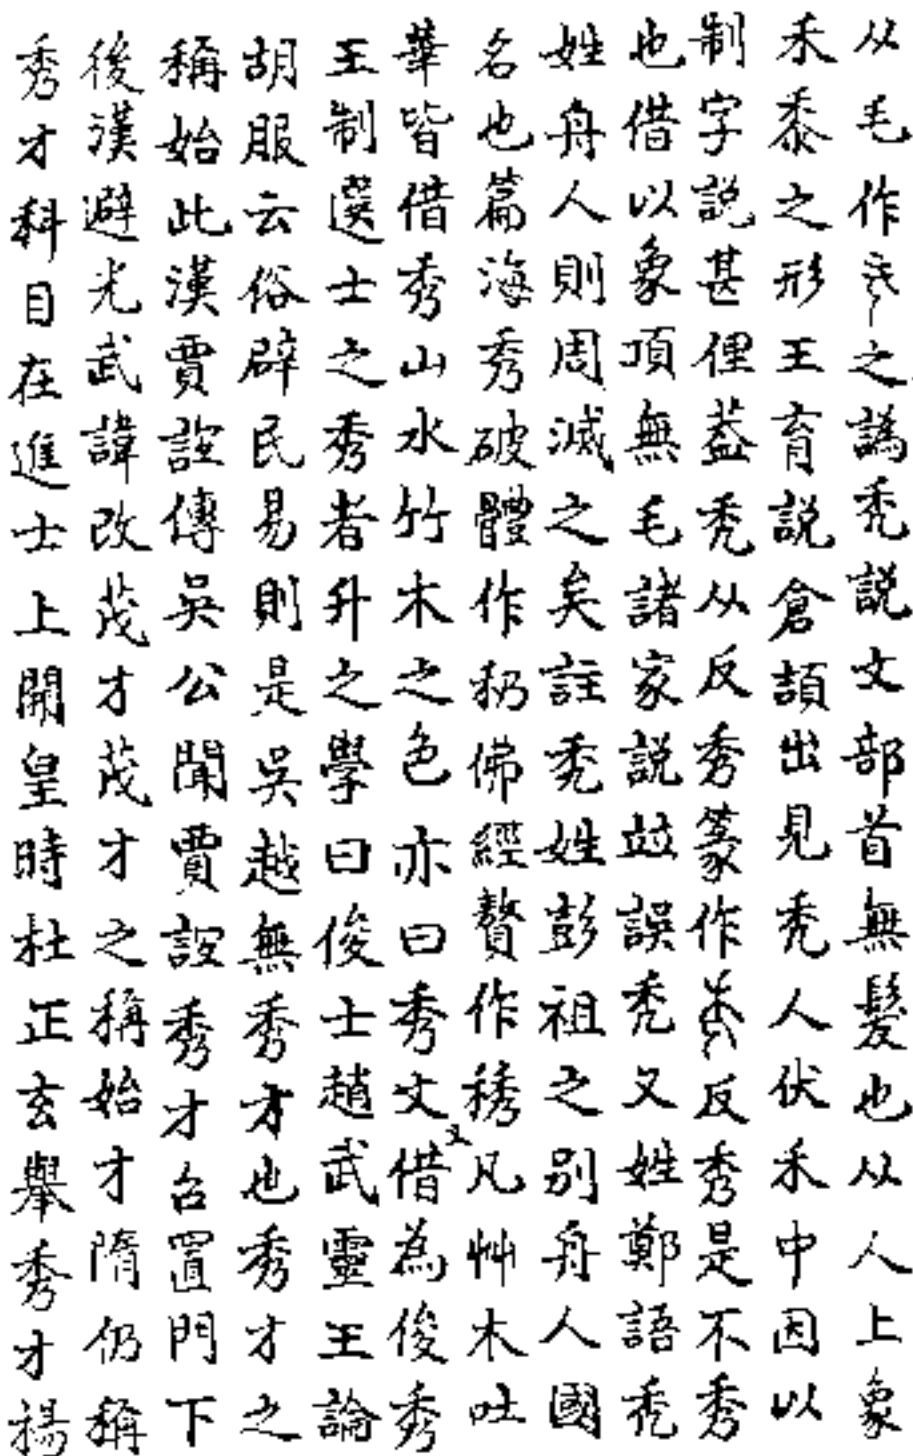 从毛作之譌秃説文部首無髮也从人上象
禾黍之形王育説倉頡出見秃人伏禾中因以
制字説甚俚葢秃从反秀篆作反秀是不秀
也借以象頂無毛諸家説竝誤秃又姓鄭語秃
姓舟人則周滅之矣註秃姓彭祖之别舟人國
名也篇海秀破體作秎佛經贅作𥠇凡艸木吐
華皆借秀山水竹木之色亦曰秀文又借為俊秀
王制選士之秀者升之學曰俊士趙武靈王論
胡服云俗辟民易則是吳越無秀才也秀才之
稱始此漢賈誼傳吳公聞賈誼秀才召置門下
後漢避光武諱改茂才茂才之稱始才隋仍稱
秀才科目在進士上開皇時杜正玄舉秀才楊